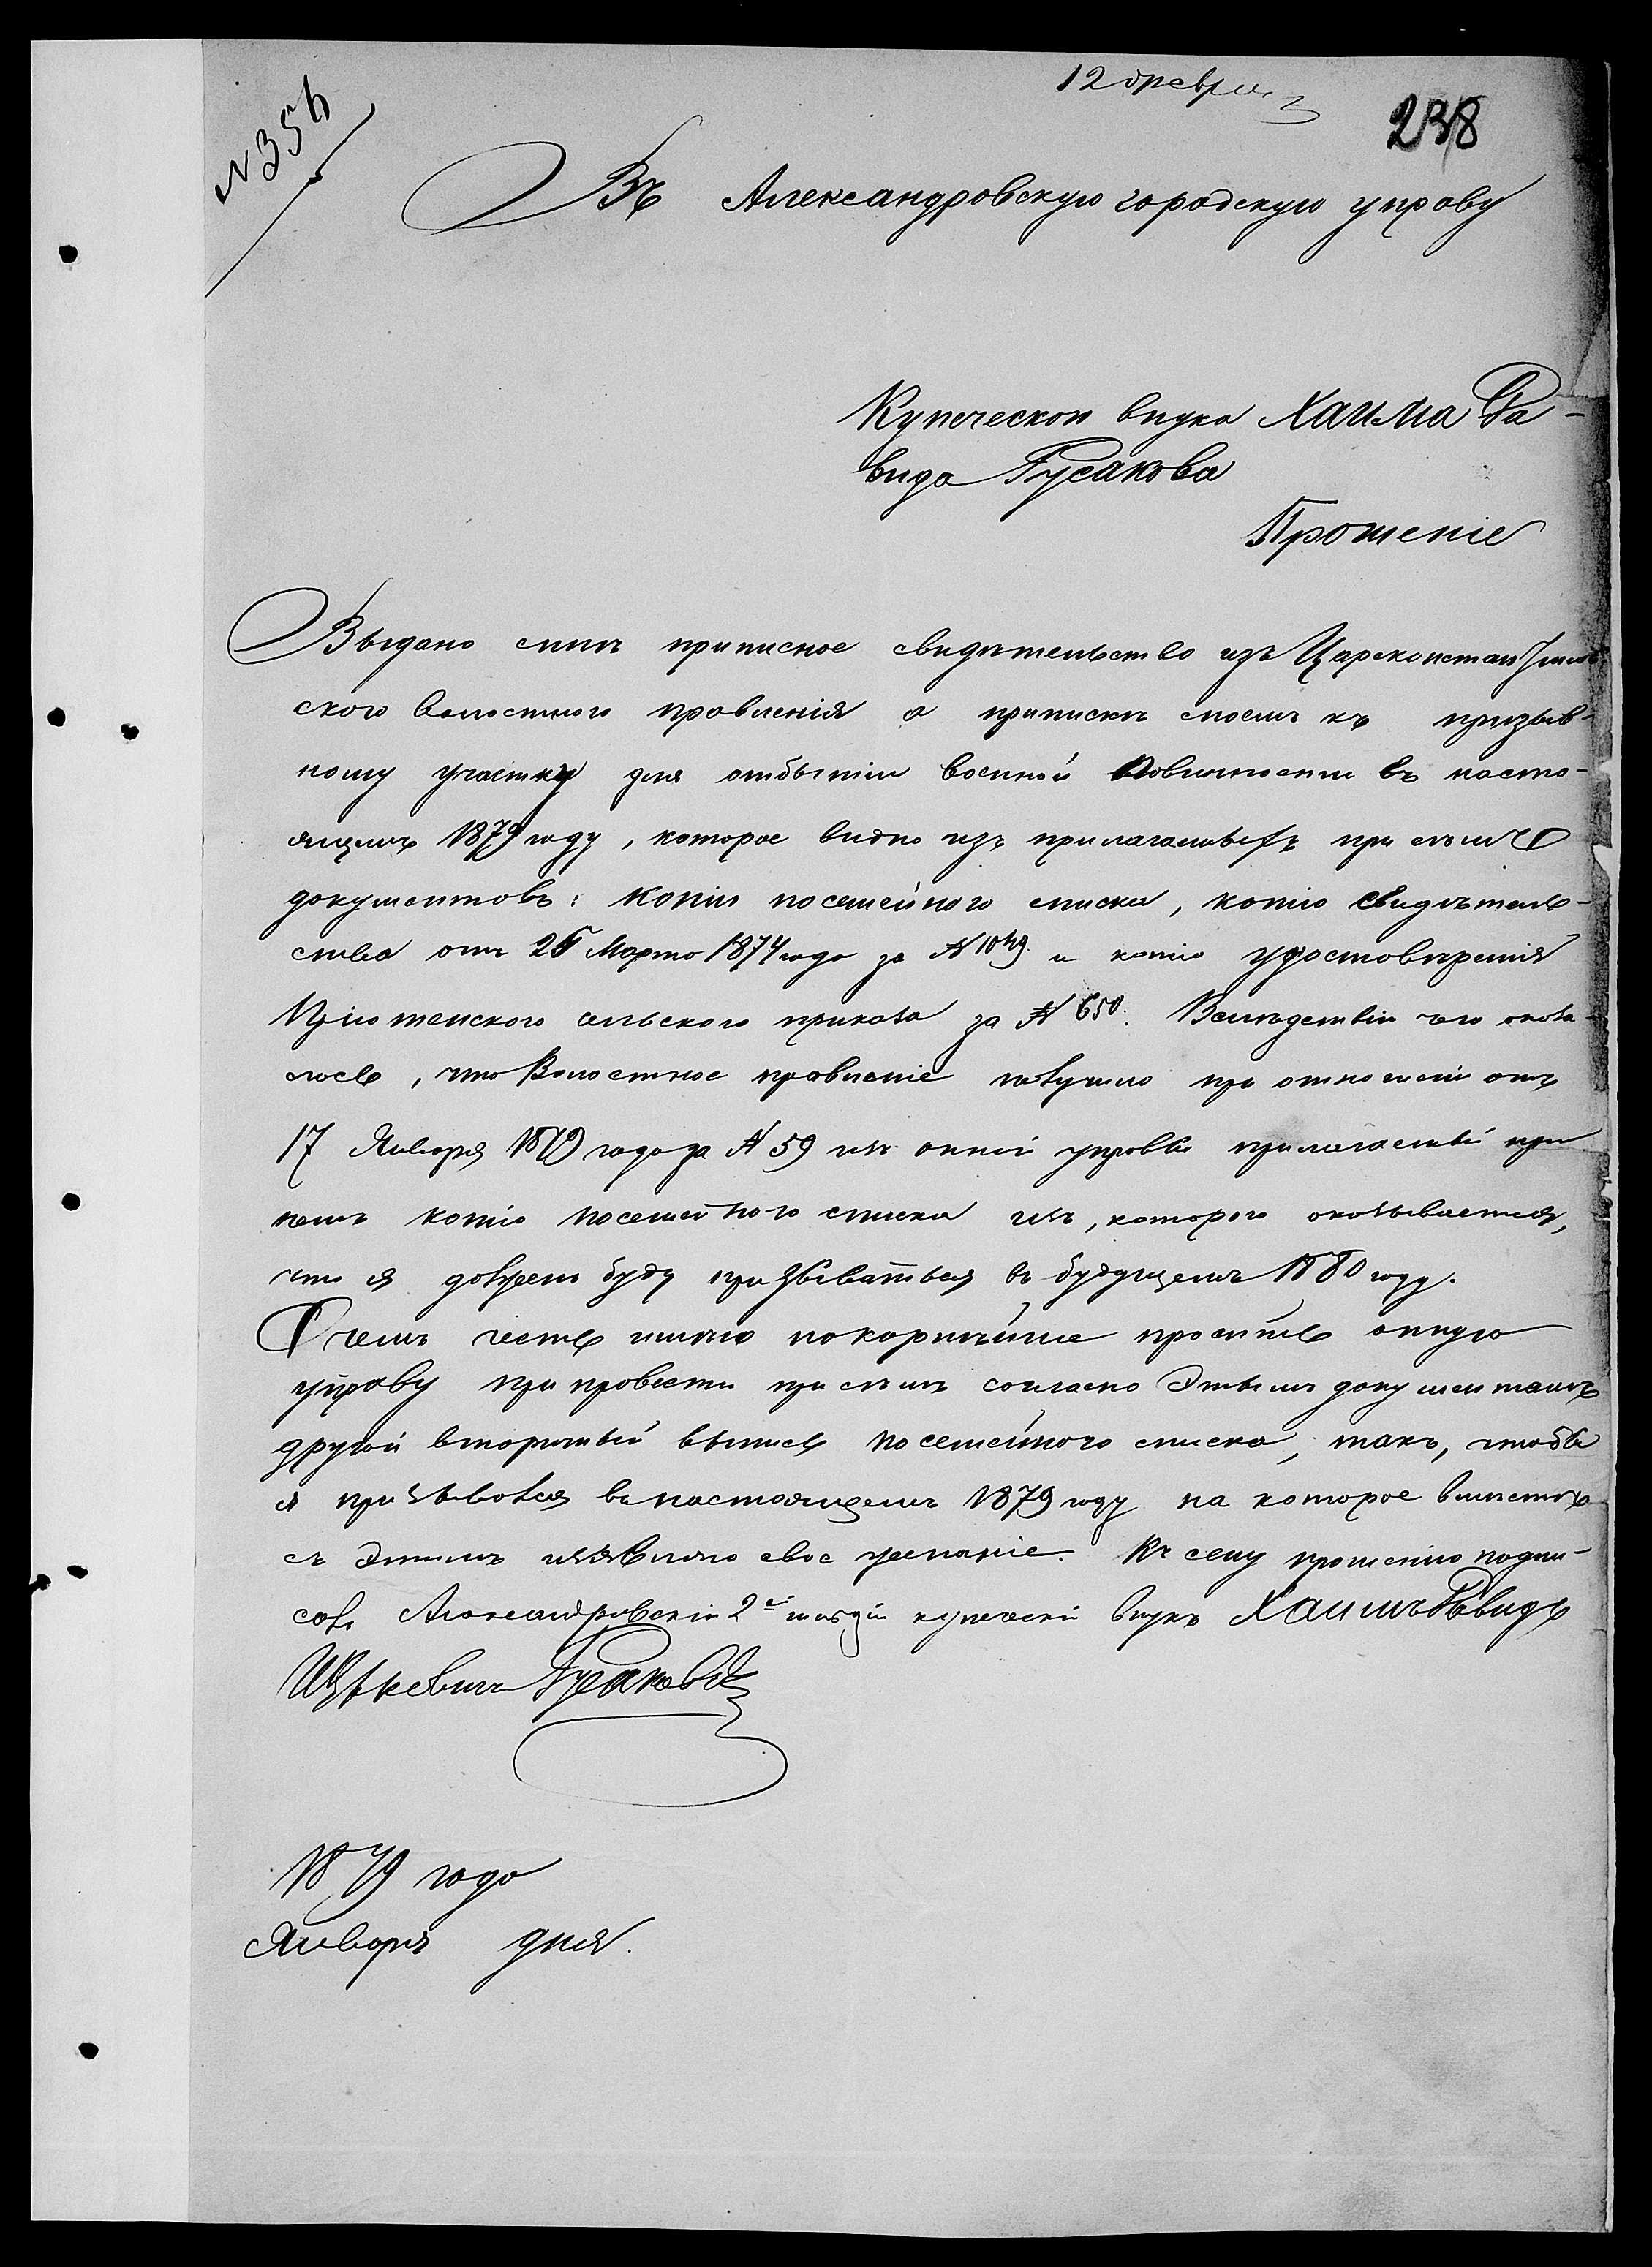 12 феврал
238
№ 354
Въ Александровскую городскую управу
Купеческои внука Хаима Ра-
вида Гусакова
Прошеніе
Выдано мнѣ приписное свидѣтельство изъ Царсконстантинов
ского Волостного правленія о припискѣ моемъ къ призыв-
ному участку для отбытіи военной Повинности въ насто-
ящемъ 1879 году, которое видно изъ прилагаемыхъ при семъ
документовъ: копіи посемейного списка, копію свидѣтель-
ства отъ 25 Марта 1874 года за № 1049. и копію удостовѣренія
сельского приказа за № 650. Вслѣдствіи чего оказа-
лось, что Волостное правленіе получило при отношеніи отъ
17 Января 1879 года за № 59 изъ оной управы прилагаемый при
немъ копію посемейного списка изъ, которого оказывается,
что я должен буду призываться въ будущемъ 1880 году.
О чемъ честь имѣю покорнѣйше просить оную
управу препровести при семъ согласно Этымъ документамъ
другой вторичный выпись посемейного списка, такъ, чтобы
я призывался въ настоящемъ 1879 году на которое вмѣсто
съ Этимъ изъявляю свое желаніе. Къ сему прошенію подпи-
салъ Александровскій 2й гильдіи купеческій внукъ Хаимъ Равидъ
Ицковичъ Гусаковъ
1879 года
Январъ дня.